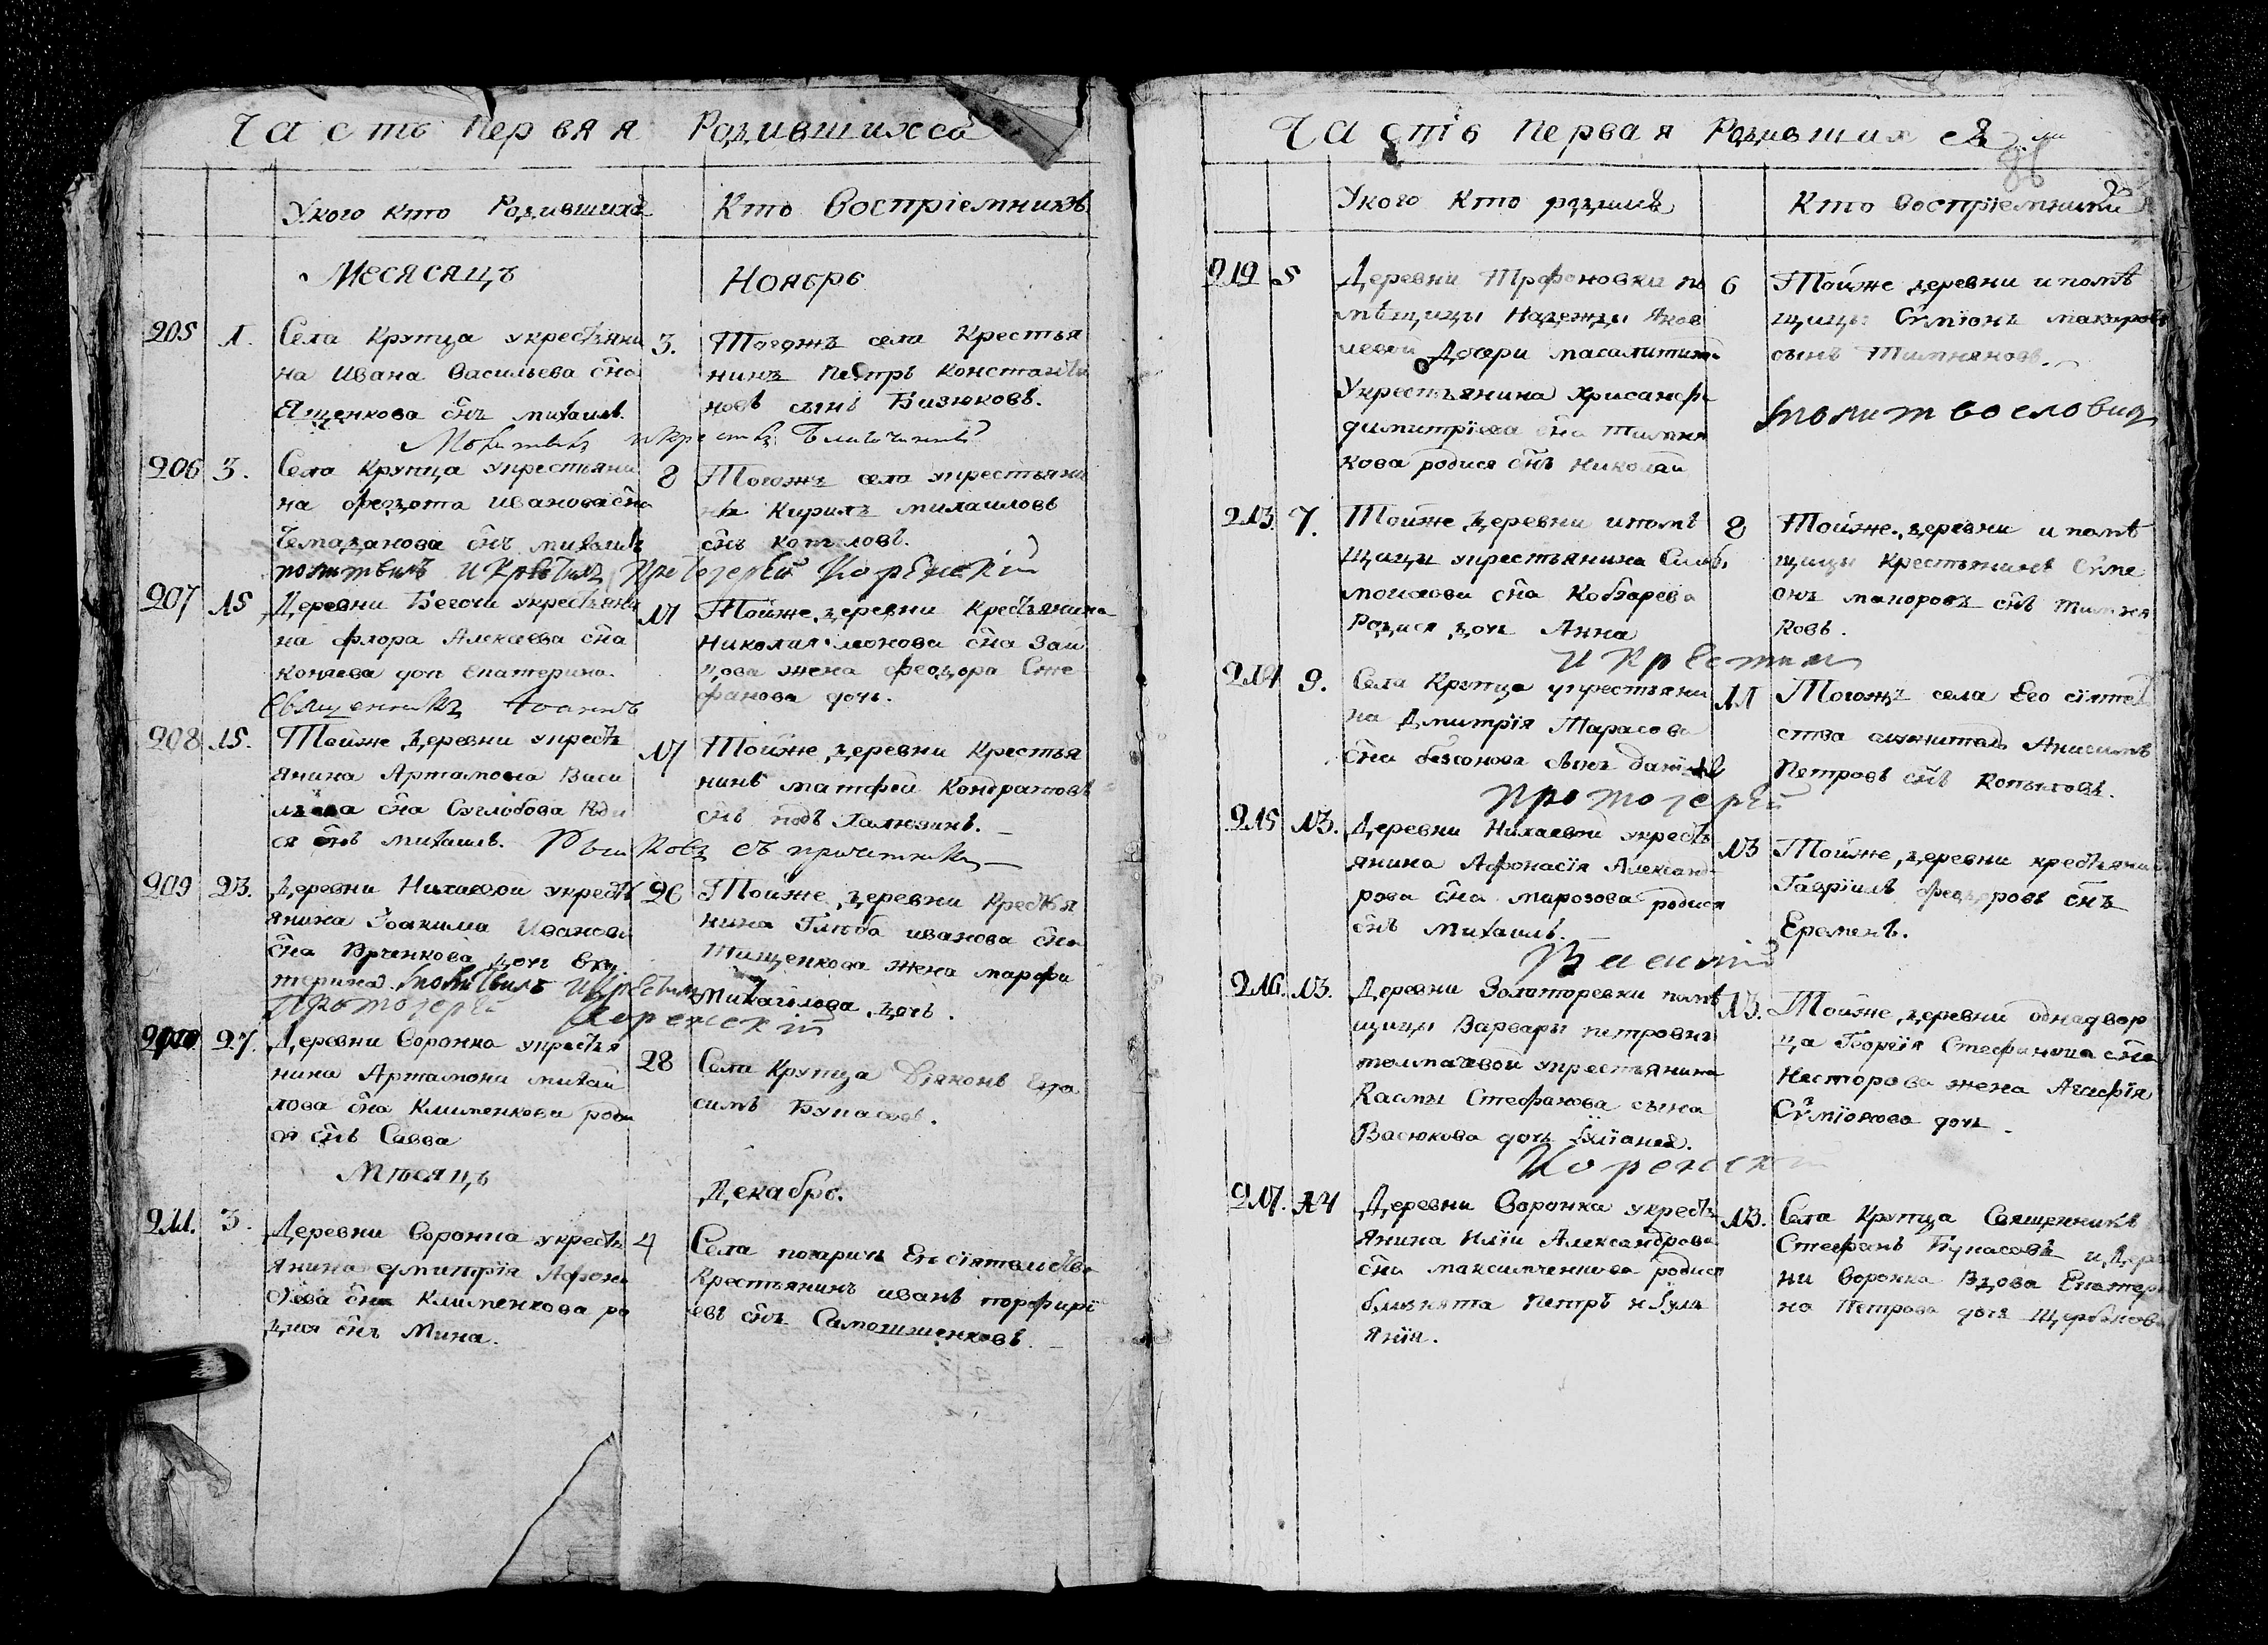 Часть Первая Родившихся
У кого кто Родившихъ
Кто Воспріемникъ
Месясяцъ
Ноябрь
205 1. Села Крупца у крестьяни
на Ивана Васильева сна
Ященкова снъ михаилъ.
3. Тогожъ села Крестья
нинъ Петръ Константи
новъ сынъ Бизюковъ.
206 3. Села Крупца у крестьяни
на федота Иванова сна
Чемоданова снъ михаилъ
8 Тогожъ села у крестьяни
Кирилъ михаиловъ
снъ
молитвилъ и Крестилъ Протоіерей Коренскій
207 15 Деревни Бегочи у крестьяни
на флора Алексѣева сна
Коняева доч Екатерина.
17 Тойже деревни Крестьянина
Николая сна
жена феодора Сте
фанова дочь.
Священникъ Іоаннъ
208 15. Тойже деревни у кресть
янина Артамона Васи
льева сна Суглобова Роди
ся снъ михаилъ.
17 Тойже деревни Крестья
нинъ матфей Кондратовъ
снъ
съ причтомъ
209 23. Деревни Нихаевои у кресть
янина Іоакима Иванова
сна доч Ека
терина. молитвилъ и крестилъ
26 Тойже деревни Крестья
нина Глѣба иванова сна
Тищенкова жена марфа
Михаілова дочь.
Протоіерей Коренскій
210 27. Деревни Воронка у крестья
нина Артамона михаи
лова сна Клименкова роди
ся снъ Савва
28 Села Крупца Діяконъ Гера
симъ Бунасовъ.
Мѣсяцъ
Декабрь.
211. 3. Деревни Воронка у кресть
янина дмитрія Афона
сіева сна Клименкова ро
дися снъ Мина.
4 Села Его сіятельства
Крестьянинъ иванъ порфирі
евъ снъ Самошшенковъ.
Часть Первая Родившихся
88
У кого Кто родился
Кто Воспріемники
212 5 Деревни Трофоновки по
мѣщицы Надежды Яков
левой Дочери
У крестьянина Хрисанфа
димитріева сна
кова родися снъ николай
6 Тойже деревни и помѣ
щицы Сѵмiонъ макаровъ
сынъ
молитвословилъ
213 7. Тойже деревни и помѣ
щицы у крестьянина
сна Кобзарева
Родися доч Анна
8 Тойже деревни и помѣ
щицы Крестьянинъ Сѵме
онъ макаровъ снъ
ковъ.
и Крестилъ
214 9. Села Крупца у крестьяни
на Дмитрія Тарасова
сна безсонова сынъ
11 Тогожъ села Его сіятель
ства Анисимъ
Петровъ снъ Копыловъ.
протоіерей
215 13. Деревни Нихаевой у кресть
янина Афонасія Алексан
рова сна марозова родися
снъ Михаилъ.
13 Тойже деревни крестьянинъ
Гавріилъ Федоровъ снъ
Еременъ.
Василій
216. 13. Деревни Золоторевки помѣ
щицы Варвары петровны
толмачевой у крестьянина
Касмы Стефанова сына
Васюкова дочь
13. Тойже деревни однодвор
ца Георгія Стефанова сна
Несторова жена Агафія
Сѵмiонова дочь.
Коренскій
217. 14 Деревни Воронка у кресть
янина Иліи Александрова
сна максимченкова родися
близнята Петръ и Іули
янія.
13. Села Крупца Священникъ
Стефанъ Бунасовъ и дере
ни Воронка Вдова Екатери
на Петрова дочь Щербакова